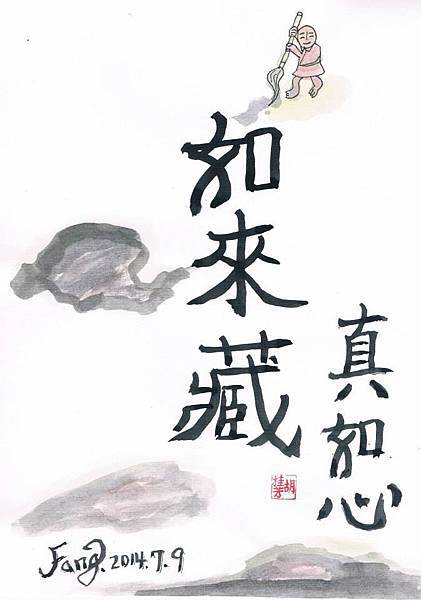 如來藏
真如心
胡
Fang. 2014.7.9